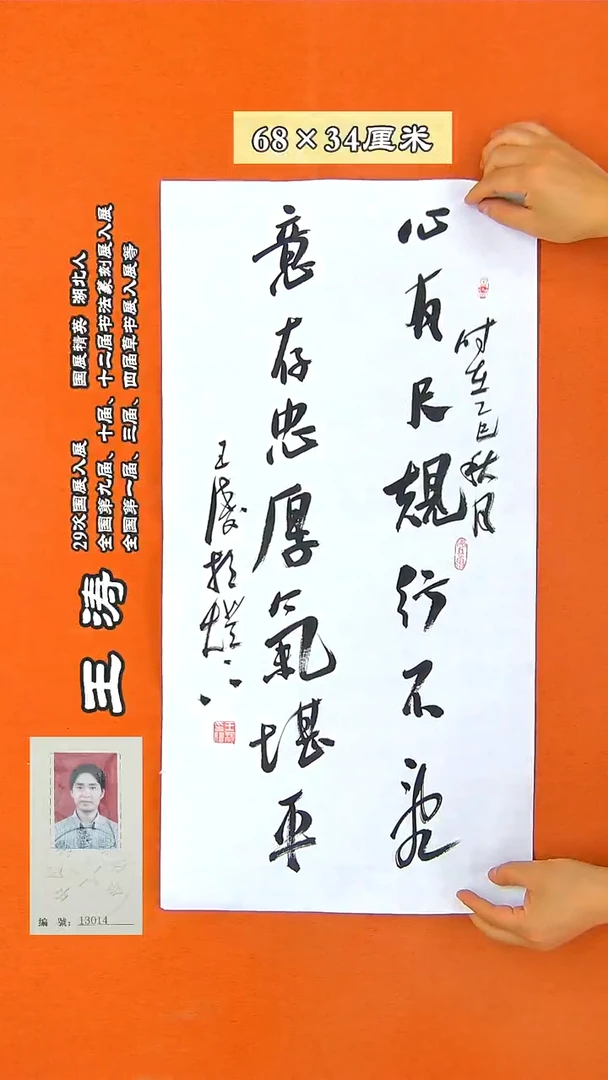 68×34厘米
时在乙巳秋月
心有尺規行不亂
意存忠厚氣堪平
王濤
29次國展入展 國展精英 湖北人
全國第九届、十届、十二届书法篆刻展入展
全國第一届、三届、四届草书展入展等
王涛
编號：13014